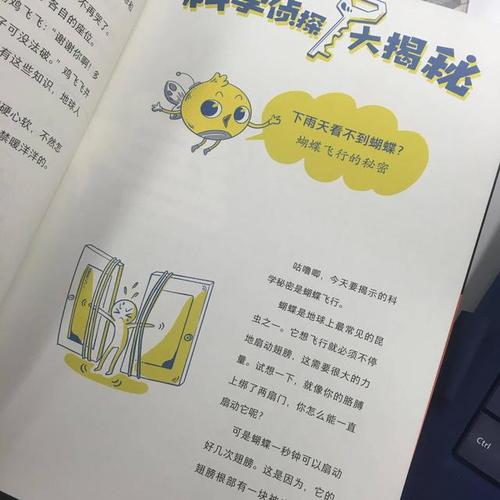 不再哭了。
各自的座位。
鸡飞飞：“谢谢你啊！多
子可没法破。”鸡飞飞共
有这些知识，地球人
硬心软，不然怎
禁暖洋洋的。
科学侦探大揭秘
下雨天看不到蝴蝶？
蝴蝶飞行的秘密
咕噜唧，今天要揭示的科
学秘密是蝴蝶飞行。
蝴蝶是地球上最常见的昆
虫之一。它想飞行就必须不停
地扇动翅膀，这需要很大的力
量。试想一下，就像你的胳膊
上绑了两扇门，你怎么能一直
扇动它呢？
可是蝴蝶一秒钟可以扇动
好几次翅膀。这是因为，它的
翅膀根部有一块神
Ctrl